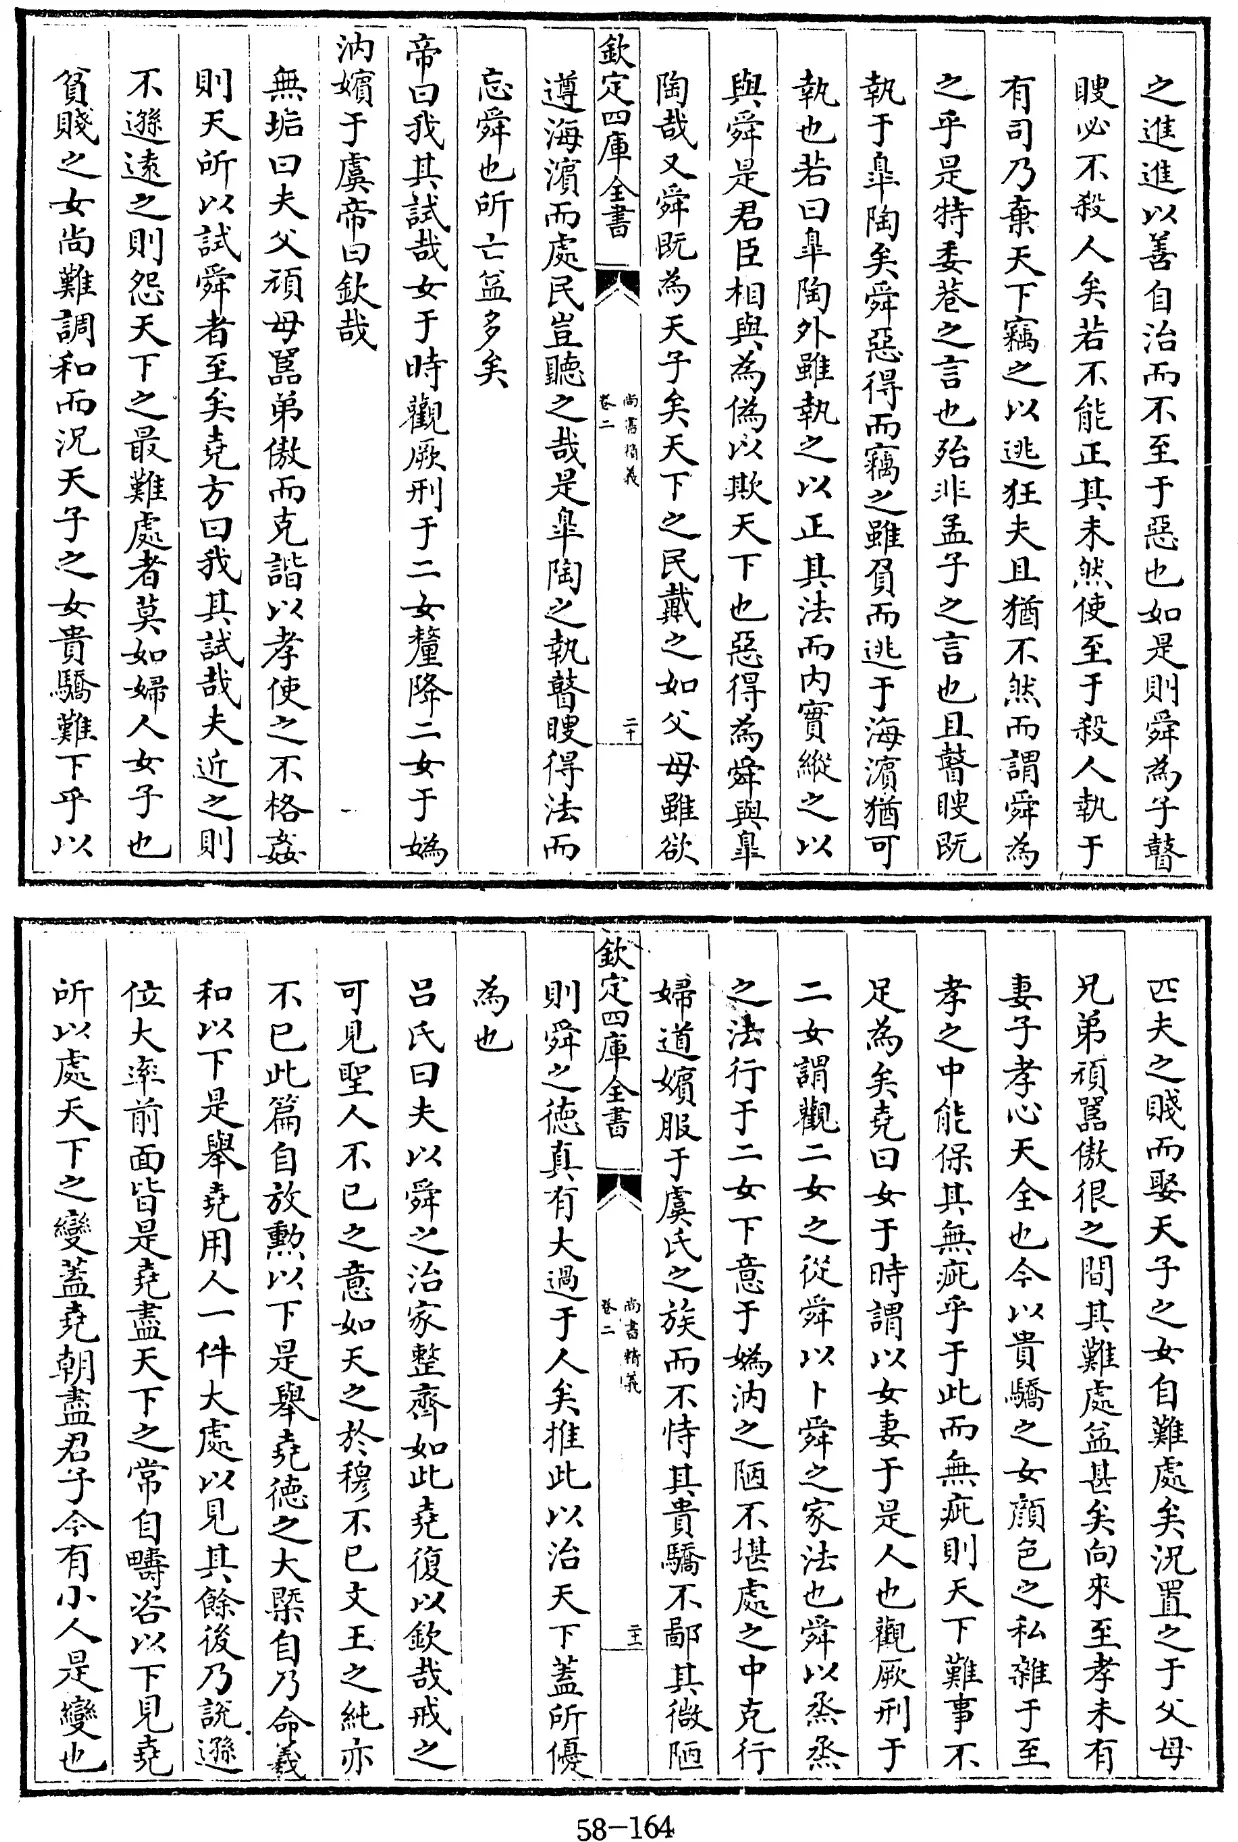 之進進以善自治而不至于惡也如是則舜為子瞽
瞍必不殺人矣若不能正其未然使至于殺人執于
有司乃棄天下竊之以逃狂夫且猶不然而謂舜為
之乎是特委巷之言也殆非孟子之言也且瞽瞍既
執于臯陶矣舜惡得而竊之雖負而逃于海濵猶可
執也若曰臯陶外雖執之以正其法而内實縱之以
與舜是君臣相與為偽以欺天下也惡得為舜與臯
陶哉又舜既為天子矣天下之民戴之如父母雖欲
欽定四庫全書
尚書精義
卷二
二十
遵海濵而處民豈聽之哉是臯陶之執瞽瞍得法而
忘舜也所亡益多矣
帝曰我其試哉女于時觀厥刑于二女釐降二女于媯
汭嬪于虞帝曰欽哉
無垢曰夫父頑母嚚弟傲而克諧以孝使之不格姦
則天所以試舜者至矣堯方曰我其試哉夫近之則
不遜逺之則怨天下之最難處者莫如婦人女子也
貧賤之女尚難調和而況天子之女貴驕難下乎以
匹夫之賤而娶天子之女自難處矣況置之于父母
兄弟頑嚚傲很之間其難處益甚矣向來至孝未有
妻子孝心天全也今以貴驕之女顔色之私雜于至
孝之中能保其無疵乎于此而無疵則天下難事不
足為矣堯曰女于時謂以女妻于是人也觀厥刑于
二女謂觀二女之從舜以卜舜之家法也舜以烝烝
之法行于二女下意于媯汭之陋不堪處之中克行
婦道嬪服于虞氏之族而不恃其貴驕不鄙其微陋
欽定四庫全書
尚書精義
卷二
二十一
則舜之徳真有大過于人矣推此以治天下蓋所優
為也
吕氏曰夫以舜之治家整齊如此堯復以欽哉戒之
可見聖人不已之意如天之於穆不已文王之純亦
不已此篇自放勲以下是舉堯徳之大槩自乃命羲
和以下是舉堯用人一件大處以見其餘後乃説遜
位大率前面皆是堯盡天下之常自疇咨以下見堯
所以處天下之變蓋堯朝盡君子今有小人是變也
58-164